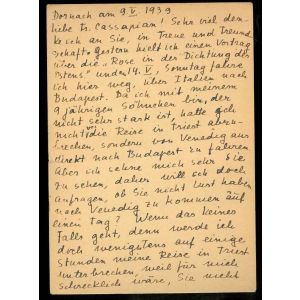 Dornach am 9 V 1939
Liebe Fr. Cassapian! Sehr viel den-
ke ich an Sie, in Treue und Freund-
schaft. Gestern hielt ich einen Vortrag
über die "Rose in der Dichtung des
Ostens" und 14. V, Sonntag fahre
ich hier weg, über Italien nach
Budapest. Da ich mit meinem
9 jährigen Söhnchen bin, der
nicht sehr stark ist, hatte ich
nicht die Reise in Triest
brechen, sondern von Venedig aus
direkt nach Budapest zu fahren
Aber ich sehne mich sehr Sie
zu sehen, daher will ich doch
anfragen, ob Sie nicht Lust haben
nach Venedig zu kommen auf
einen Tag? Wenn das keines
Falls geht, denn werde ich
doch wenigstens auf einige
Stunden meine Reise in Triest
unterbrechen, weil für mich
schrecklich wäre, Sie nicht